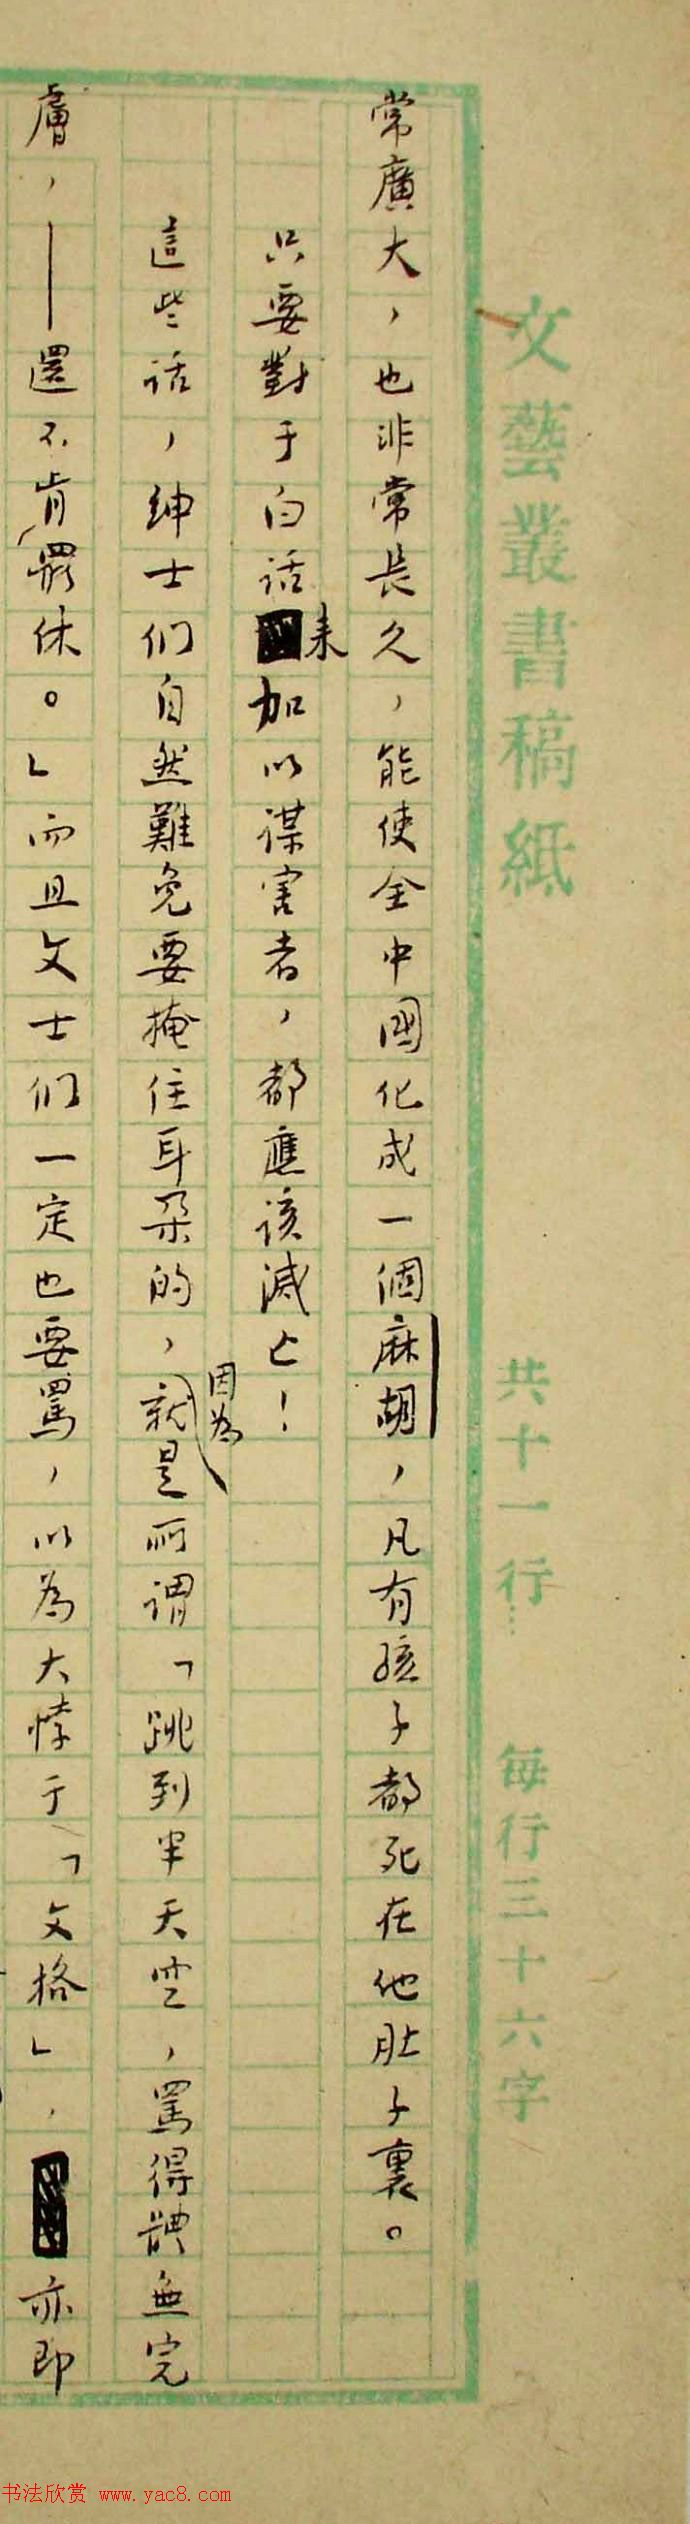 文藝叢書稿紙
共十一行… 每行三十六字
常廣大，也非常長久，能使全中國化成一個麻胡，凡有孩子都死在他肚子裏。
只要對于白話来加以謀害者，都應該滅亡！
這些話，紳士们自然難免要掩住耳朵的，因為就是所謂「跳到半天空，罵得體無完
膚，——還不肯罷休。」而且文士们一定也要罵，以為大悖于「文格」，亦即
书法欣赏 www.yac8.com